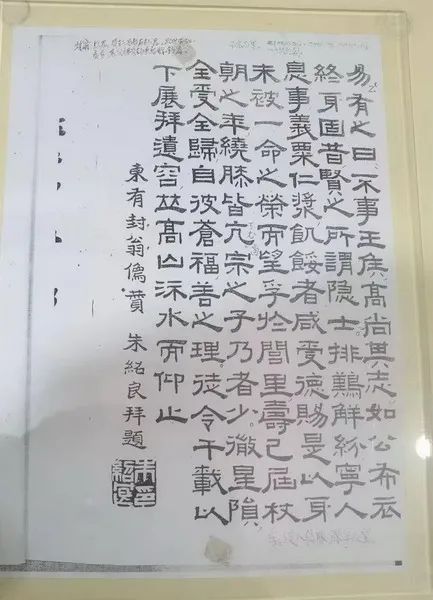 易有之曰不事王侯高尚其志如公布衣
終身固昔賢之所謂隐士排難解紛寧人
息事義粟仁漿飢餒者咸受德賜是以身
未被一命之榮而望孚於閭里壽已屆杖
朝之年繞膝皆亢宗之子乃者少微星隕
全受全歸自彼蒼福善之理徒令千載以
下展拜遺容竝高山水而仰止
東有封翁像贊 朱紹良拜題